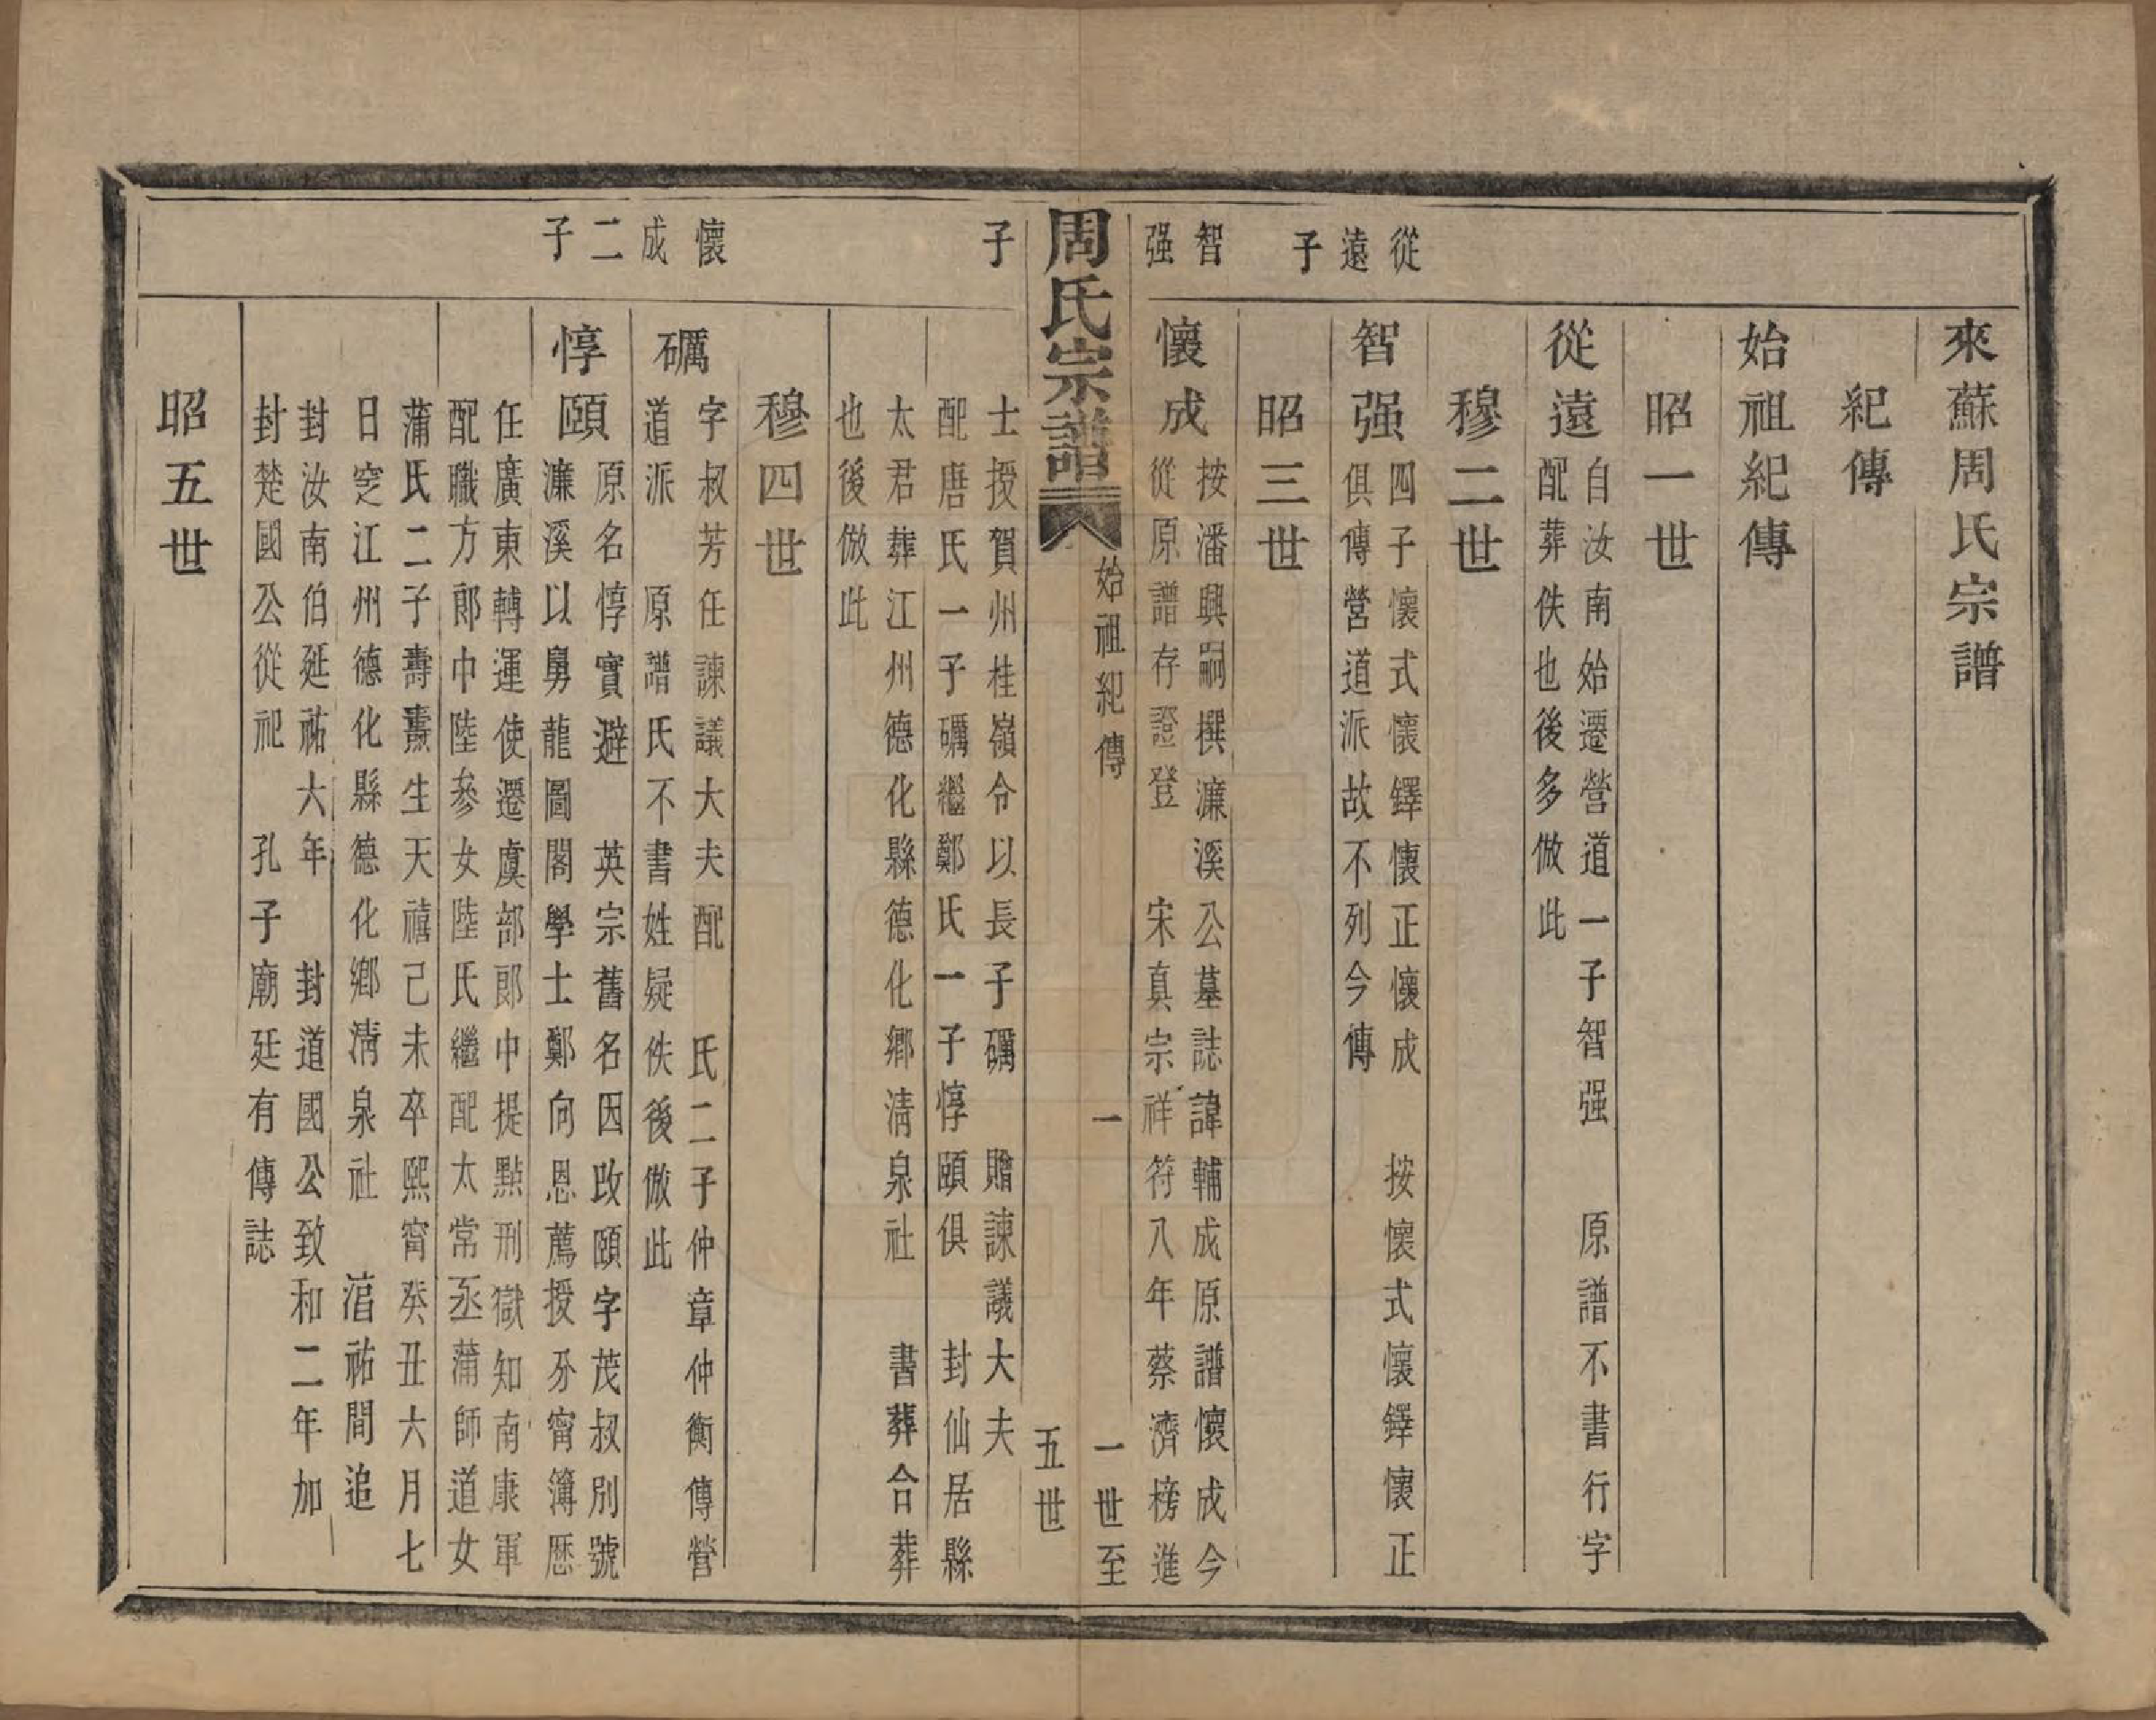 來蘇周氏宗譜
紀傳
始祖紀傳
昭一世
從遠子
從遠
自汝南始遷營道一子智强　原譜不書行字
配葬佚也後多倣此
穆二世
智强
四子懷式懷鐸懷正懷成　按懷式懷鐸懷正
俱傳營道派故不列今傳
昭三世
智强
懷成
按潘興嗣撰濂溪公墓誌諱輔成原譜懷成今
從原譜存證登　宋真宗祥符八年蔡濟榜進
周氏宗譜
始祖紀傳
一
一世至
五世
子
士授賀州桂嶺令以長子礪　贈諫議大夫
配唐氏一子礪繼鄭氏一子惇頤俱　封仙居縣
太君葬江州德化縣德化鄉清泉社　書葬合葬
也後倣此
穆四世
懷成二子
礪
字叔芳任諫議大夫配　氏二子仲章仲衡傳營
道派　原譜氏不書姓疑佚後倣此
惇頤
原名惇實避　英宗舊名因改頤字茂叔別號
濂溪以舅龍圖閣學士鄭向恩薦授分甯簿歷
任廣東轉運使遷虞部郎中提點刑獄知南康軍
配職方郎中陸參女陸氏繼配太常丞蒲師道女
蒲氏二子壽燾生天禧己未卒熙甯癸丑六月七
日窆江州德化縣德化鄉清泉社　淳祐間追
封汝南伯延祐六年　封道國公致和二年加
封楚國公從祀　孔子廟廷有傳誌
昭五世